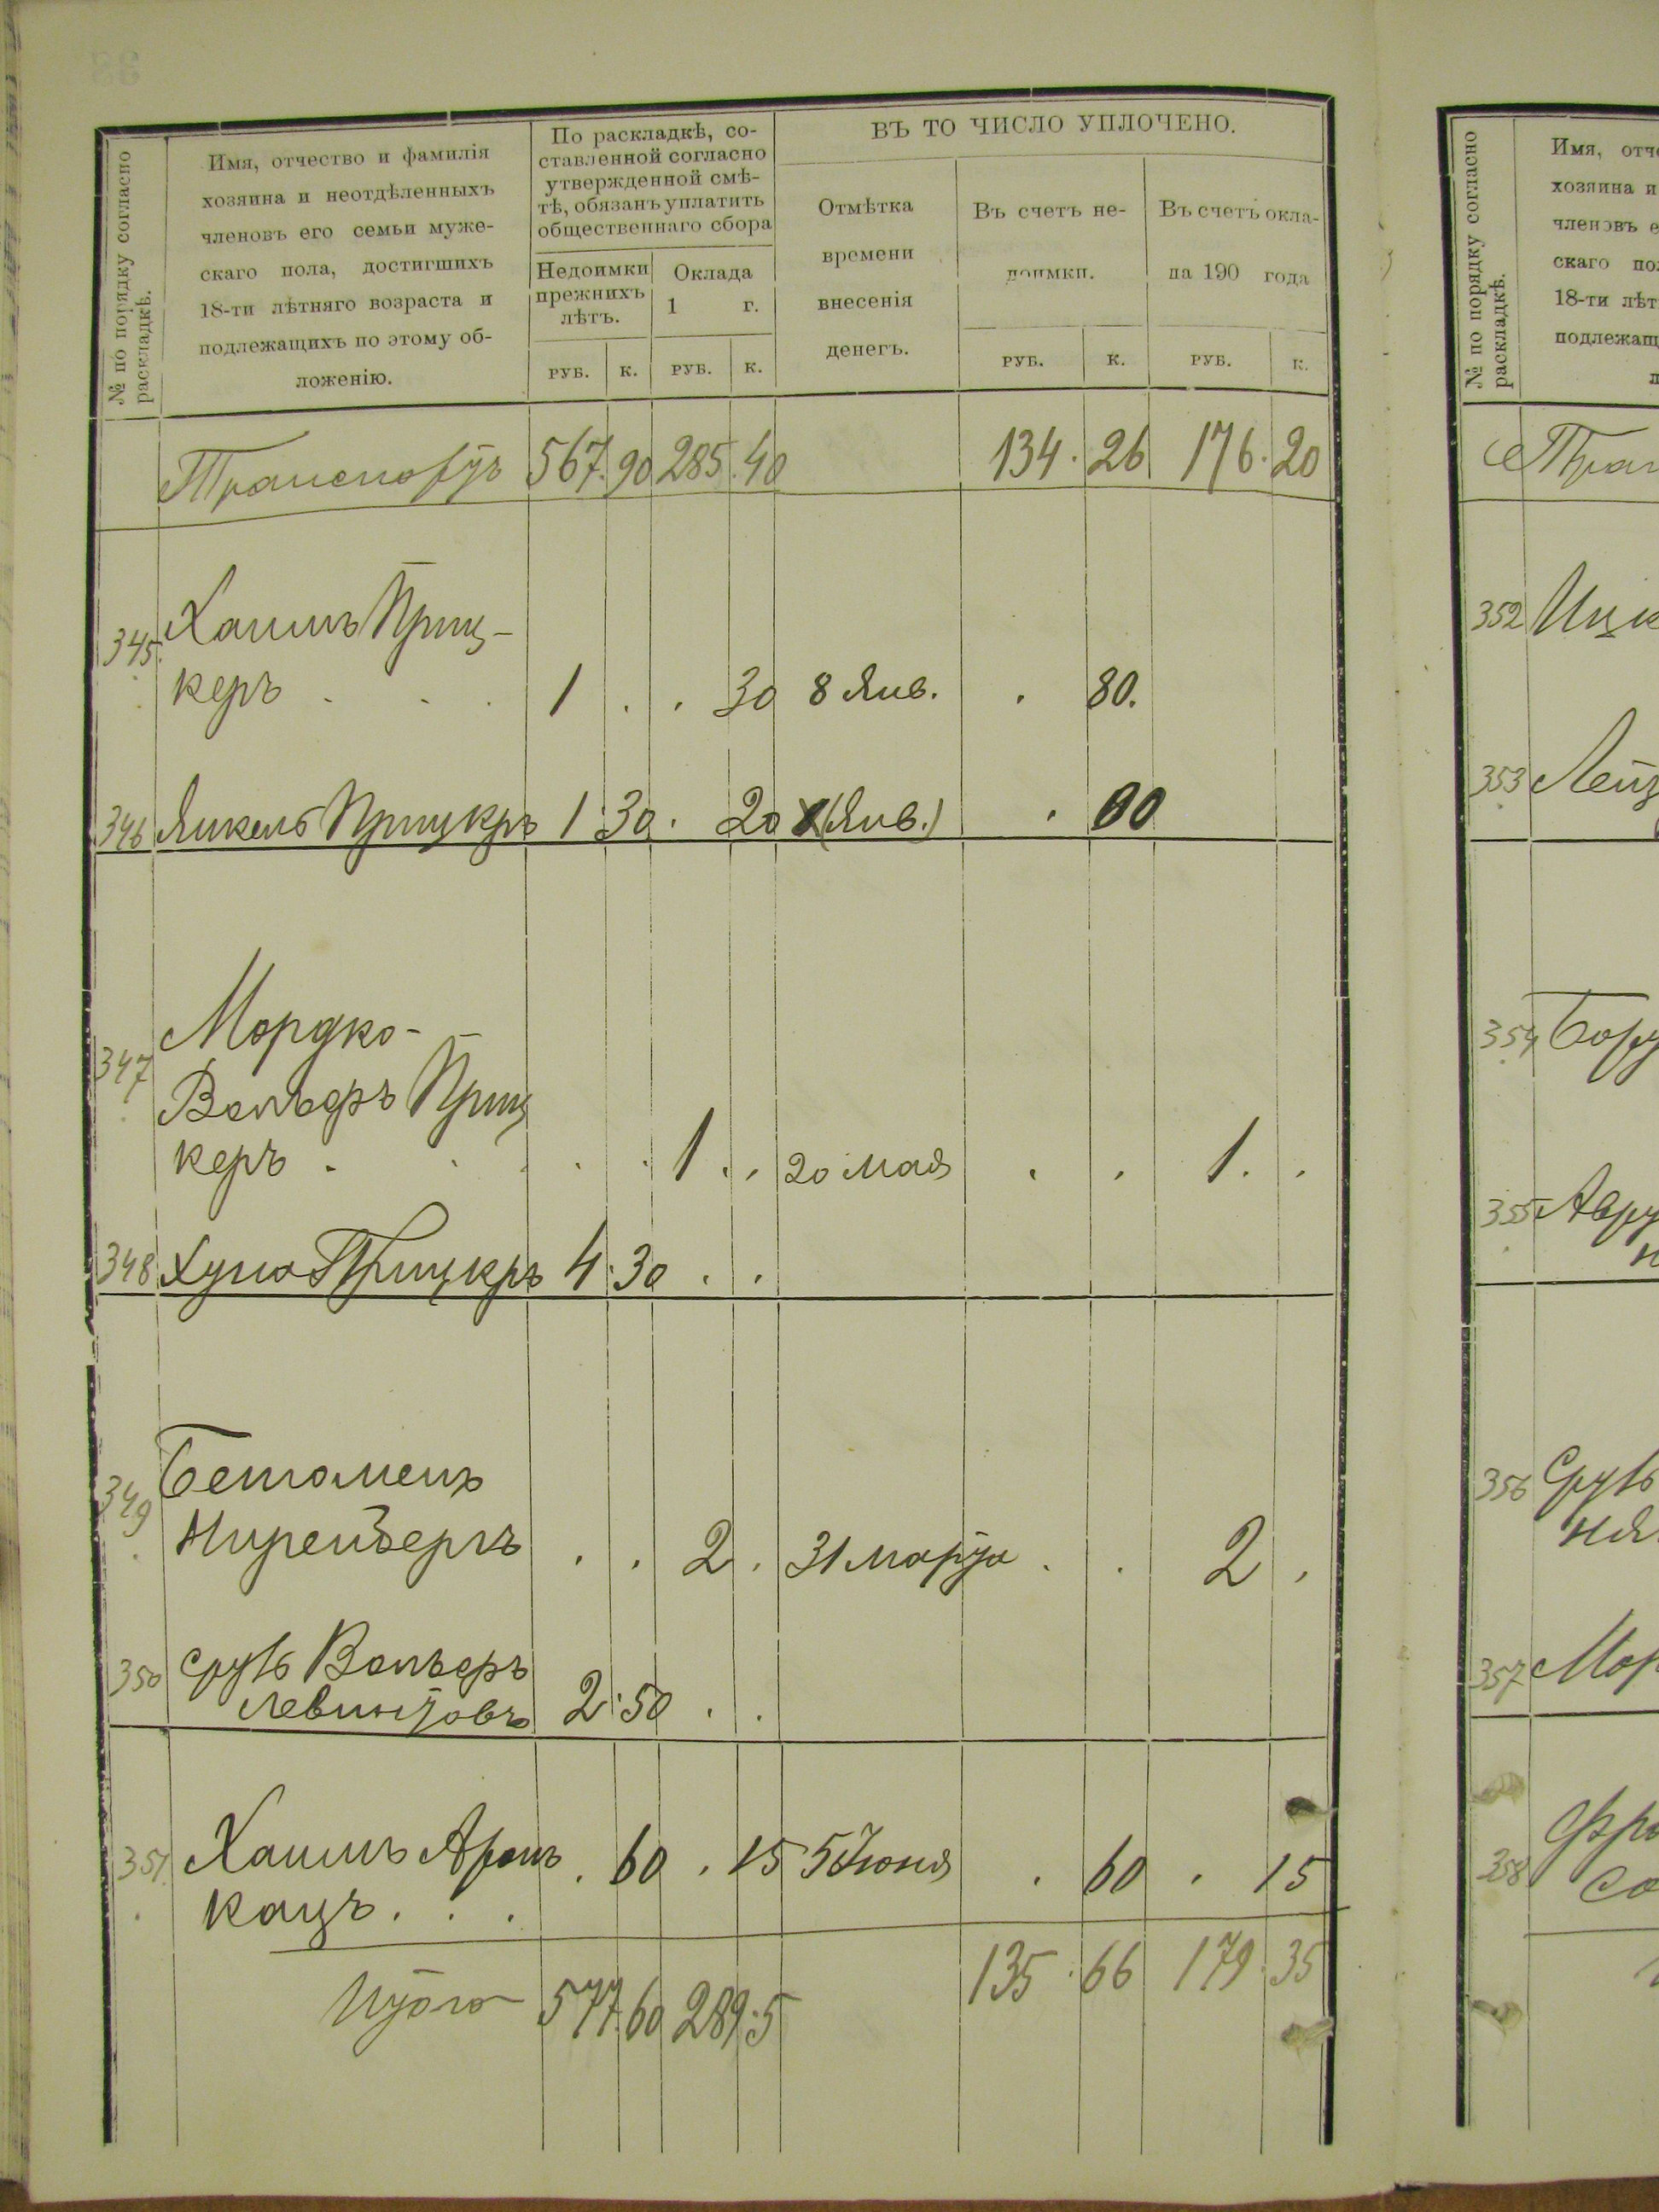 № по порядку согласно
раскладкѣ.
Имя, отчество и фамилія
хозяина и неотдѣленныхъ
членовъ его семьи муже-
скаго пола, достигшихъ
18-ти лѣтняго возраста и
подлежащихъ по этому об-
ложенію.
По раскладкѣ, со-
ставленной согласно
утвержденной смѣ-
тѣ, обязанъ уплатить
общественнаго сбора
Недоимки
прежнихъ
лѣтъ.
Оклада
1 г.
РУБ. К. РУБ. К.
ВЪ ТО ЧИСЛО УПЛОЧЕНО.
Отмѣтка
времени
внесенія
денегъ.
Въ счетъ не-
доимки.
Въ счетъ окла-
да 190 года
РУБ. К. РУБ. К.
Транспортъ 567. 90 285. 40 134. 26 176. 20
345. Хаимъ Приц-
керъ . . . 1 . . 30 8 Янв. . 80.
346 Янкель Прицкръ 1 30 . 20 (Янв.) .
347 Мордко-
Вольфъ Приц
керъ . . . . . 1 . . 20 мая . . 1. .
348 Хуна Прицкръ 4. 30 . .
349 Беть
Ниренбергъ . . 2 . 31 марта . . 2 .
350 Сруль Вольфъ
Левинтовъ 2. 50 . .
351. Хаимъ Аронъ . 60 . 15 5 Июня . 60 . 15
Кацъ . . .
Итого 577. 60 289. 5 135. 66 179. 35
№ по порядку согласно
раскладкѣ.
Имя, отче
хозяина и
членовъ е
скаго по
18-ти лѣт
подлежащ
Тран
352 Ицк
353 Лейз
354 Бору
355 Авру
356 Сруль
357 Мор
358